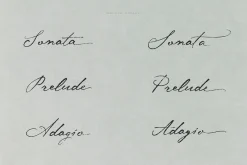 Sonata Sonata
Prelude Prelude
Adagio Adagio